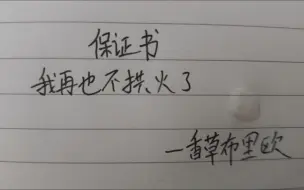 保证书
我再也不拱火了
一香草布里欧